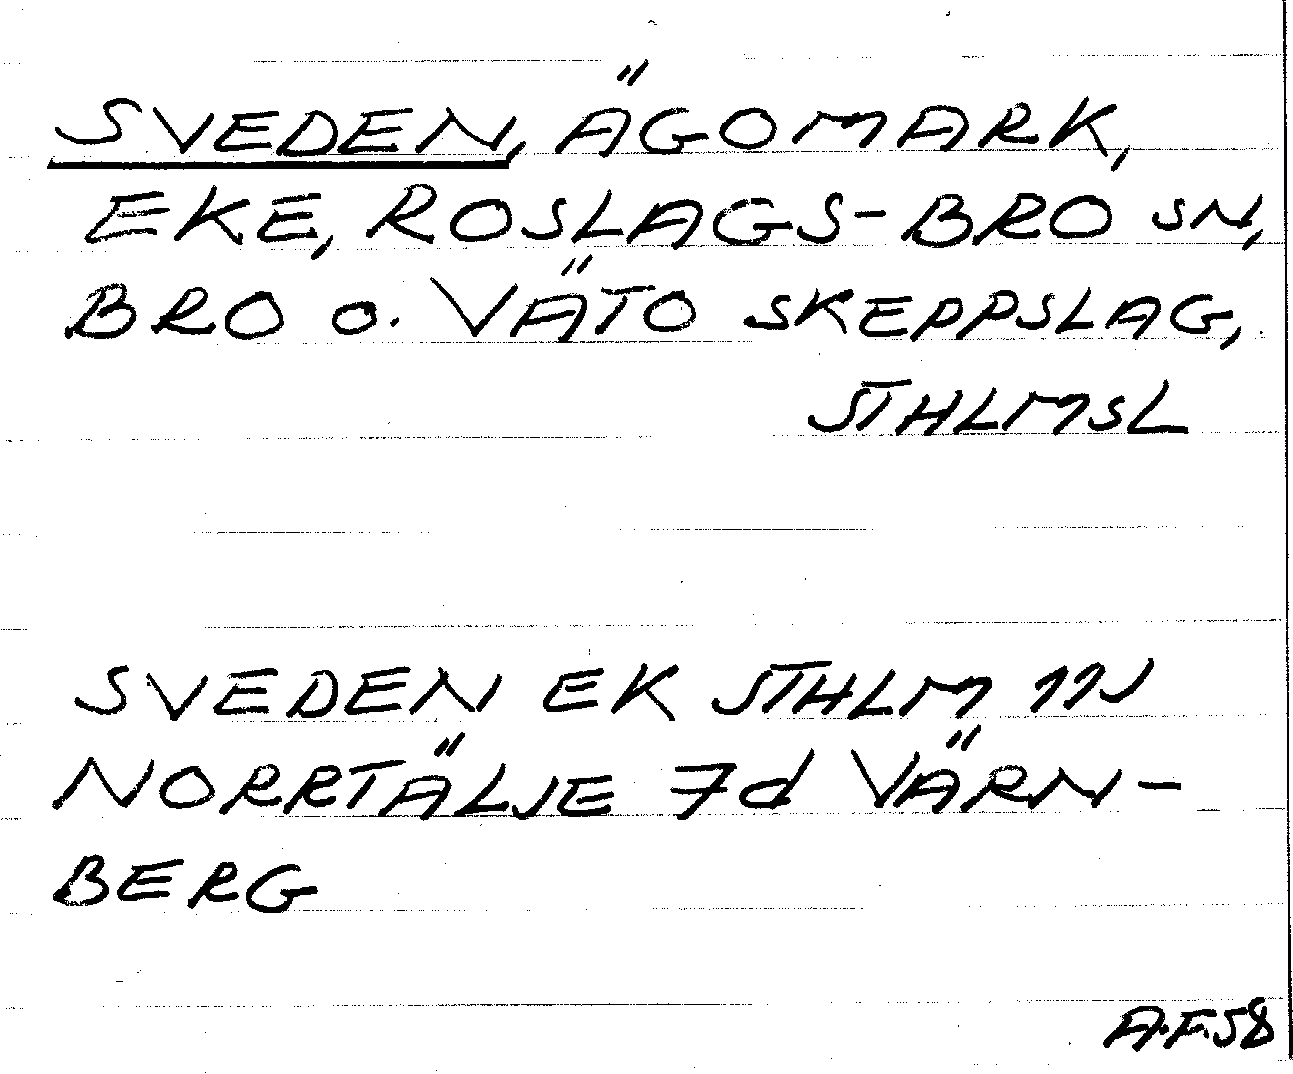 SVEDEN, ÄGOMARK,
EKE, ROSLAGS-BRO SN,
BRO O. VÄTO SKEPPSLAG,
STHLMSL
SVEDEN EK STHLM 11NJ
NORRTÄLJE 7d VÄRN-
BERG
A.F.58